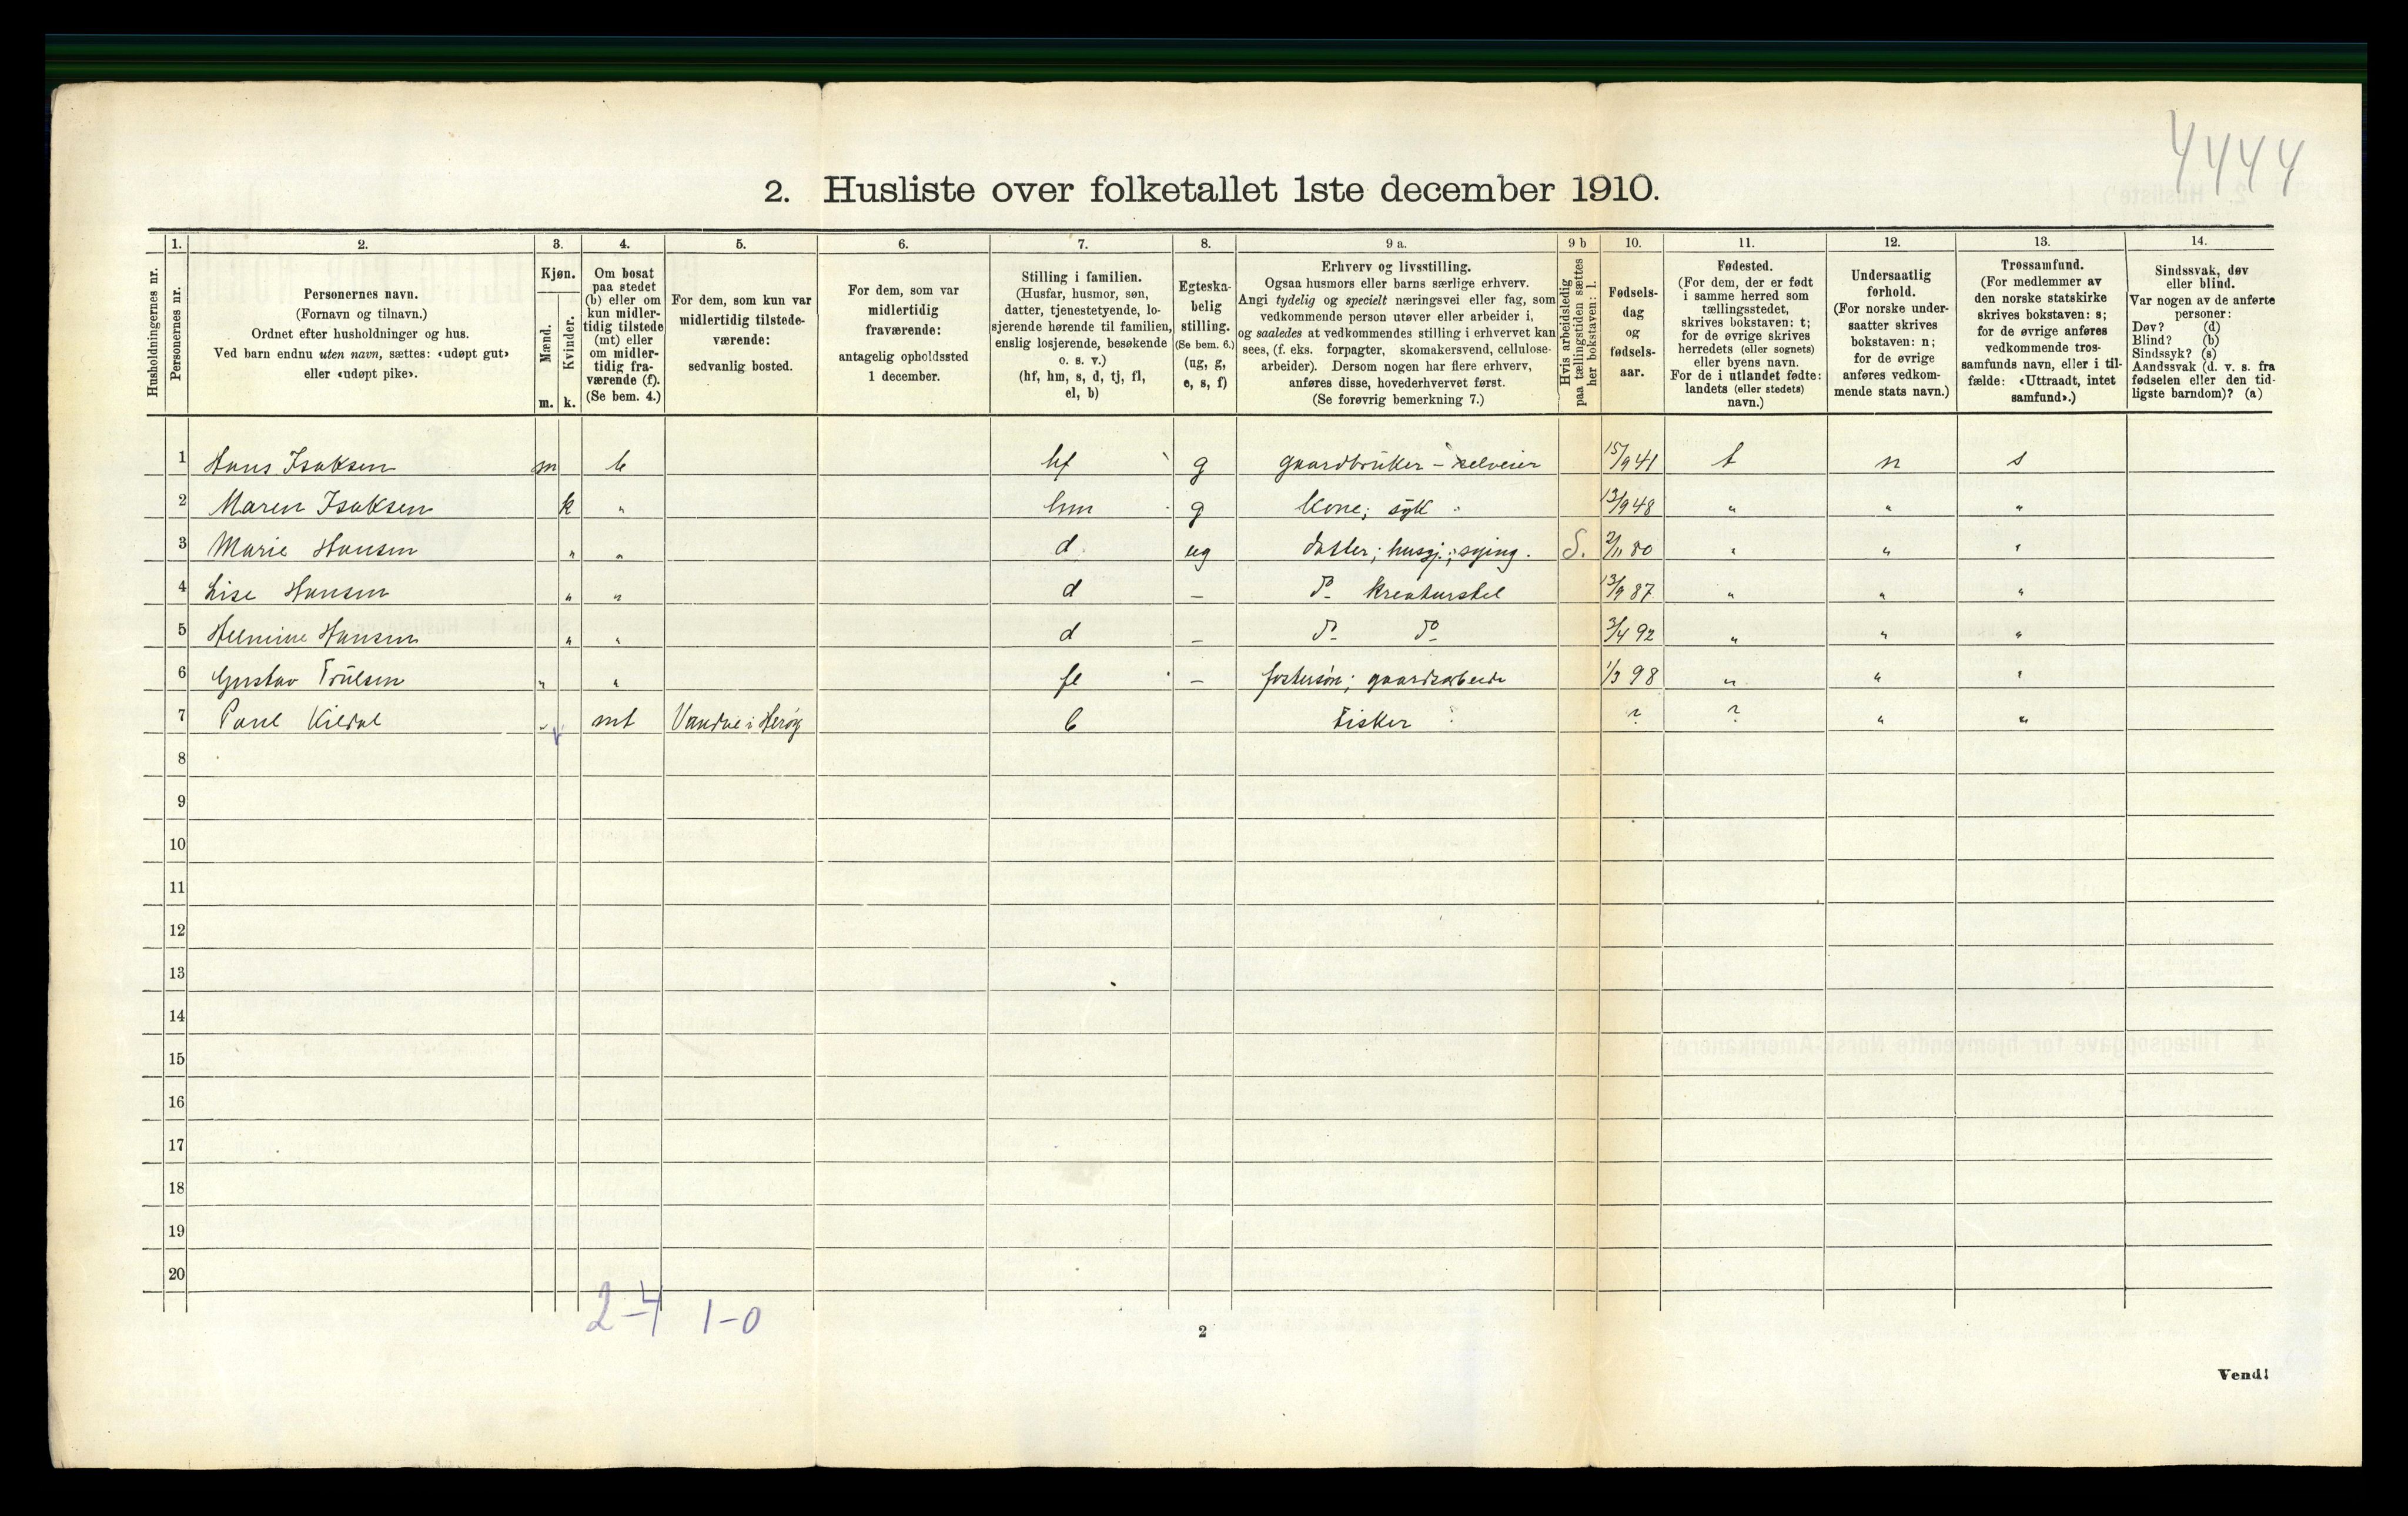 4444
2. Husliste over folketallet 1ste december 1910.
1. 2. 3. 4. 5. 6. 7. 8. 9 a. 9 b 10. 11. 12. 13. 14.
Husholdningernes nr.
Personernes nr.
Personernes navn.
(Fornavn og tilnavn.)
Ordnet efter husholdninger og hus.
Ved barn endnu uten navn, sættes: «udøpt gut»
eller «udøpt pike».
Kjøn.
Mænd.
Kvinder.
m. k.
Om bosat
paa stedet
(b) eller om
kun midler-
tidig tilstede
(mt) eller
om midler-
tidig fra-
værende (f).
(Se bem. 4.)
For dem, som kun var
midlertidig tilstede-
værende:
sedvanlig bosted.
For dem, som var
midlertidig
fraværende:
antagelig opholdssted
1 december.
Stilling i familien.
(Husfar, husmor, søn,
datter, tjenestetyende, lo-
sjerende hørende til familien,
enslig losjerende, besøkende
o. s. v.)
(hf, hm, s, d, tj, fl,
el, b)
Egteska-
belig
stilling.
(Se bem. 6.)
(ug, g,
e, s, f)
Erhverv og livsstilling.
Ogsaa husmors eller barns særlige erhverv.
Angi tydelig og specielt næringsvei eller fag, som
vedkommende person utøver eller arbeider i,
og saaledes at vedkommendes stilling i erhvervet kan
sees, (f. eks. forpagter, skomakersvend, cellulose-
arbeider). Dersom nogen har flere erhverv,
anføres disse, hovederhvervet først.
(Se forøvrig bemerkning 7.)
Hvis arbeidsledig
paa tællingstiden sættes
her bokstaven: l.
Fødsels-
dag
og
fødsels-
aar.
Fødested.
(For dem, der er født
i samme herred som
tællingsstedet,
skrives bokstaven: t;
for de øvrige skrives
herredets (eller sognets)
eller byens navn.
For de i utlandet fødte:
landets (eller stedets)
navn.)
Undersaatlig
forhold.
(For norske under-
saatter skrives
bokstaven: n;
for de øvrige
anføres vedkom-
mende stats navn.)
Trossamfund.
(For medlemmer av
den norske statskirke
skrives bokstaven: s;
for de øvrige anføres
vedkommende tros-
samfunds navn, eller i til-
fælde: «Uttraadt, intet
samfund».)
Sindssvak, døv
eller blind.
Var nogen av de anførte
personer:
Døv? (d)
Blind? (b)
Sindssyk? (s)
Aandssvak (d. v. s. fra
fødselen eller den tid-
ligste barndom)? (a)
1 Hans Isaksen m b hf g gaardbruker - selveier 15/9 41 t n s
2 Maren Isaksen k " hm g kone; syk 13/9 48 " " "
3 Marie Hansen " " d ug datter; husgj.; sying. S. 2/11 80 " " "
4 Lise Hansen " " d - Do kreaturstel 13/9 87 " " "
5 Helmine Hansen " " d - Do Do 3/4 92 " " "
6 Gustav Trulsen " " fl - fostersøn; gaardsarbeide 1/3 98 " " "
7 Paul Kildal " mt Vandve i Herøy b fisker ? ? " "
8
9
10
11
12
13
14
15
16
17
18
19
20
2-4 1-0
2
Vend!